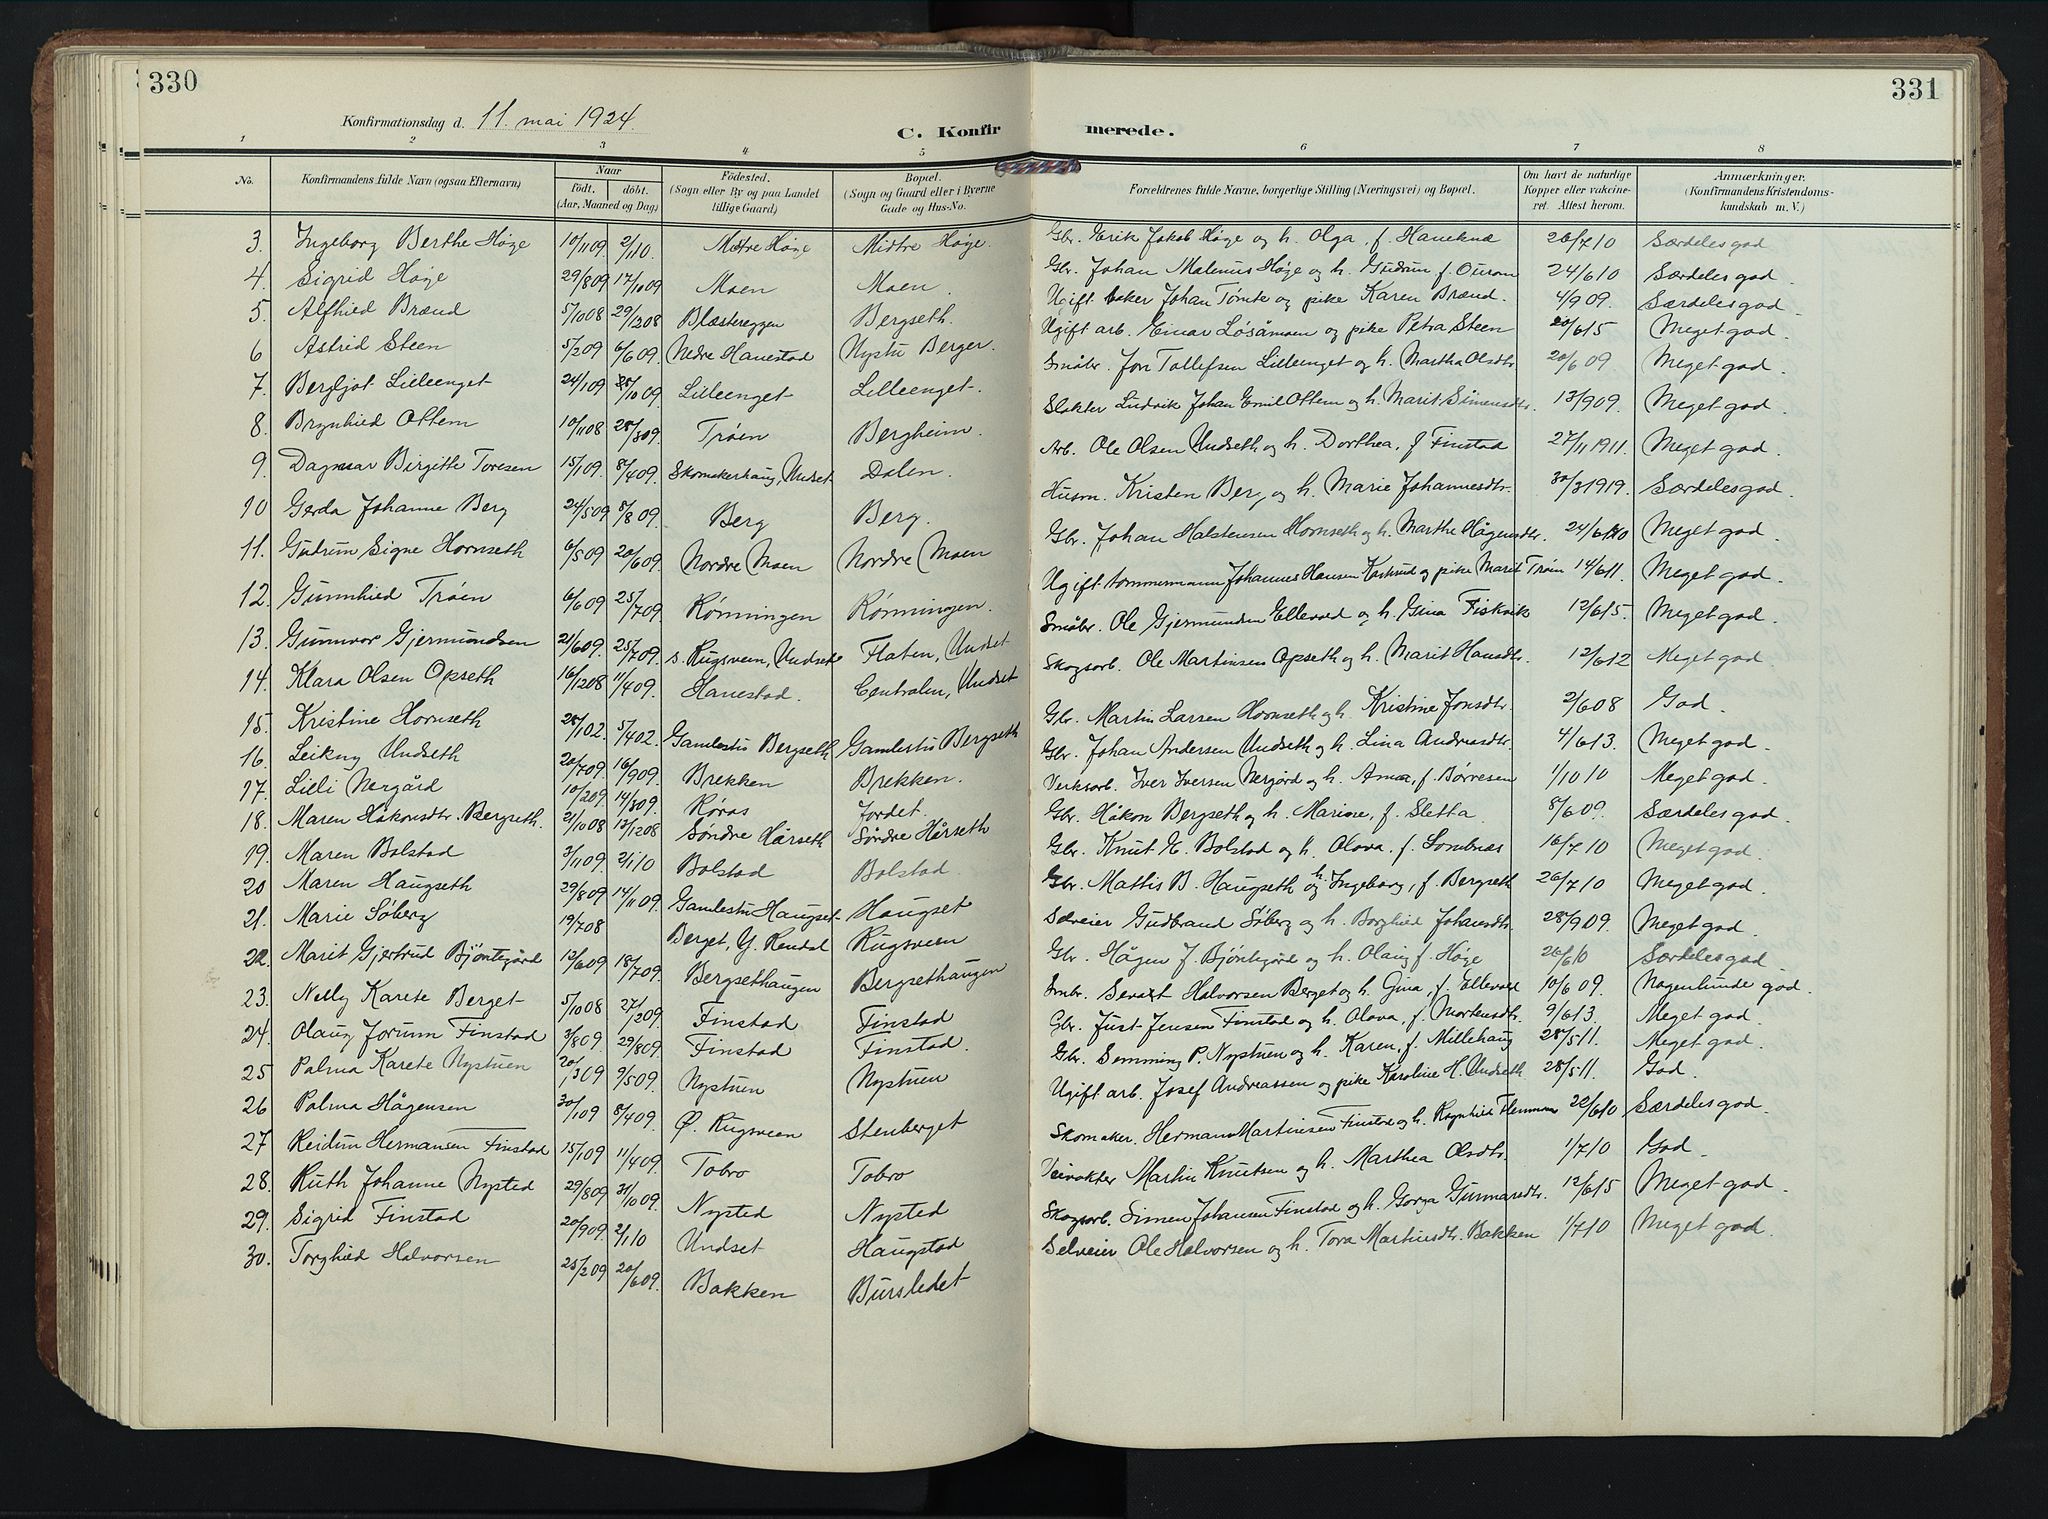 330
331
Konfirmationsdag d. 11. mai 1924.
C. Konfirmerede.
1 2 3 4 5 6 7 8
No. Konfirmandens fulde Navn (ogsaa Efternavn) Naar født. døbt. (Aar, Maaned og Dag) Fødested. (Sogn eller By og paa Landet tillige Gaard) Bopæl. (Sogn og Gaard eller i Byerne Gade og Hus-No. Forældrenes fulde Navne, borgerlige Stilling (Næringsvei) og Bopæl. Om havt de naturlige Kopper eller vakcineret. Attest herom. Anmærkninger. (Konfirmandens Kristendomskundskab m. V.)
3. Ingeborg Berthe Høge 10/11 09 2/1 10 Midtre Høge Midtre Høge. Gbr. Erik Jakob Høge og h. Olga, f. Haneknæ 26/7 10 Særdeles god
4. Sigrid Høge 29/8 09 17/10 09 Moen Moen. Gbr. Johan Malenius Høge og h. Gudrun f. 24/6 10 Særdeles god.
5. Alfhild Brænd 5/10 08 29/12 08 Blæstereggen Bergseth. Ugift baker Johan Tomte og pike Karen Brænd. 4/9 09. Særdeles god.
6 Astrid Steen 5/2 09 6/6 09. Nedre Hanestad Nystu Berger. Ugift arb. Einar Løsåmoen og pike Petra Steen 20/6 15 Meget god.
7. Bergljot Lilleenget 24/1 09 /10 09. Lilleenget Lilleenget. Småbr. Jon Tollefsen Lilleenget og h. Martha Olsdtr 20/6 09 Meget god.
8. Brynhild Ottem 10/11 08 28/3 09. Trøen Bergheim. Slakter Ludvik Johan Emil Ottem og h. Marit Simensdtr. 13/9 09. Meget god.
9. Dagmar Birgitte Toresen 15/1 09 8/4 09. Skomakerhaug, Undset Dalen. Arb. Ole Olsen Undseth og h. Dorthea, f Finstad 27/11 1911. Meget god.
10 Gerda Johanne Berg 24/5 09 8/8 09. Berg Berg. Husm. Kristen Berg og h. Marie Johannesdtr. 30/3 1919. Særdeles god.
11. Gudrun Signe Hornseth 6/5 09 20/6 09. Nordre Moen Nordre Moen Gbr. Johan Halstensen Hornseth og h. Marthe Hågensdtr. 24/6 10 Meget god.
12. Gunnhild Trøen 6/6 09 25/7 09. Rønningen Rønningen. Ugift tømmermann Johannes Hansen og pike Marit Trøen 14/6 11. Meget god.
13. Gunnvor Gjermundsen 21/6 09. 25/7 09. s. Rugsveen, Undset Flaten, Undset Småbr. Ole Gjermundsen Ellevold og h. Gina Fiskvik 12/6 15. Meget god.
14. Klara Olsen Opseth 16/12 08 11/4 09. Hanestad. Centralen, Undset Skogsarb. Ole Martinsen Opseth og h. Marit Hansdtr. 12/6 12 Meget god
15. Kristine Hornseth 28/1 02. 5/4 02. Gamlestu Bergseth Gamlestu Bergseth Gbr. Martin Larsen Hornseth og h. Kristine Jonsdtr. 2/6 08 God.
16. Leikny Undseth 20/7 09. 16/9 09. Brekken Brekken. Gbr. Johan Andersen Undseth og h. Lina Andreasdtr. 4/6 13. Meget god.
17. Lilli Nergård 10/2 09. 14/3 09. Røros Jordet. Verksarb. Iver Iversen Nergård og h. Anna, f. Børresen 1/10 10 Meget god.
18. Maren Håkonsdtr. Bergseth. 21/10 08 13/12 08 Søndre Hårseth Søndre Hårseth Gbr. Håkon Bergseth og h. Marine, f. Sletta. 8/6 09. Særdeles god.
19. Maren Bolstad 3/11 09. 2/1 10 Bolstad Bolstad. Gbr. Knut E. Bolstad og h. Olava, f. Lombnæs 16/7 10 Meget god.
20 Maren Haugseth 29/8 09 14/11 09. Gamlestu Haugset Haugset Gbr. Mattis B. Haugseth og h. Ingeborg, f. Bergseth 26/7 10 Meget god.
21. Marie Søberg 19/7 08 Berget, Y. Rendal Rugsveen Selveier Gudbrand Søberg og h. Borghild Johansdtr. 28/9 09. Meget god.
22. Marit Gjertrud Bjøntegård 12/6 09 18/7 09. Bergsethaugen Bergsethaugen Gbr. Hågen J. Bjøntegård og h. Olaug f. Høge 26/6 10 Særdeles god
23. Nelly Karete Berget 5/10 08 27/12 09. Finstad Finstad Småbr. Halvorsen Berget og h. Gina, f. Ellevold 10/6 09. Nogenlunde god.
24. Olaug Jorunn Finstad 3/8 09. 29/8 09. Finstad Finstad. Gbr. Just Jensen Finstad og h. Olava, f. Mortensdtr. 9/6 13. Meget god.
25 Palma Karete Nystuen 20/3 09 9/5 09. Nystuen Nystuen Gbr. Semming P. Nystuen og h. Karen, f. Millehaug 28/5 11. Meget god.
26 Palma Hågensen 30/1 09 8/4 09. Ø. Rugsveen Stenberget Ugift arb. Josef Andreassen og pike Karoline H. Undseth 28/5 11. God.
27 Reidun Hermansen Finstad 15/1 09 11/4 09. Tobro Tobro Skomaker. Herman Martinsen Finstad og h. Ragnhild 22/6 10 Særdeles god.
28. Ruth Johanne Nysted 29/8 09 31/10 09. Nysted Nysted Veivokter Martin Knutsen og h. Marthea Olsdtr. 1/7 10 God.
29. Sigrid Finstad 20/9 09. 2/1 10 Undset Haugstad Skogsarb. Simen Johansen Finstad og h. Gorga Gunnarsdtr. 12/6 15 Meget god.
30. Torghild Halvorsen 25/2 09 20/6 09. Bakken Bursledet Selveier Ole Halvorsen og h. Tora Martinsdtr. Bakken 1/7 10 Meget god.